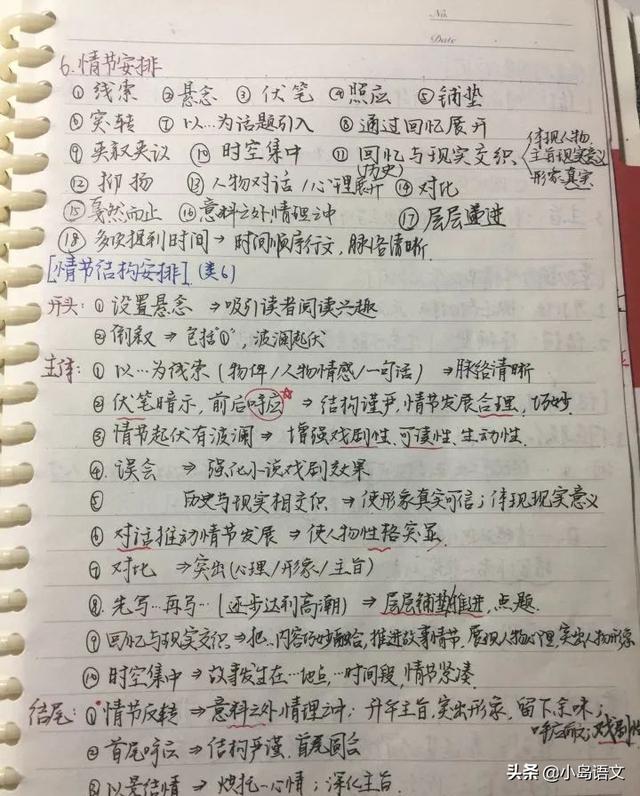 No.
Date
6.情节安排
①线索 ②悬念 ③伏笔 ④照应 ⑤铺垫
⑥突转 ⑦以…为话题引入 ⑧通过回忆展开
⑨夹叙夹议 ⑩时空集中 ⑪回忆与现实交织(历史) {体现人物 主旨现实意义 形象真实
⑫抑扬 ⑬人物对话/心理展开 ⑭对比
⑮戛然而止 ⑯意料之外情理之中 ⑰层层递进
⑱多次提到时间→时间顺序行文,脉络清晰.
[情节结构安排](类6)
开头:①设置悬念→吸引读者阅读兴趣
②倒叙→包括"①",波澜起伏
主体:①以…为线索(物件/人物情感/一句话)→脉络清晰
②伏笔暗示,前后呼应☆→结构谨严,情节发展合理,巧妙.
③情节起伏有波澜→增强戏剧性、可读性、生动性.
④误会→强化小说戏剧效果
⑤历史与现实相交织→使形象真实可信;体现现实意义
⑥对话推动情节发展→使人物性格突显.
⑦对比→突出(心理/形象/主旨)
⑧先写…再写…(逐步达到高潮)→层层铺垫推进,点题.
⑨回忆与现实交织→把..内容巧妙融合,推进故事情节,展现人物心理,突出人物形象
⑩时空集中→故事发生在…地点,…时间段,情节紧凑.
结尾:①情节反转→意料之外情理之中;升华主旨,突出形象,留下余味;
戏剧性
②首尾呼应→结构严谨.首尾圆合
③以景结情→烘托…心情;深化主旨.
头条@小岛语文